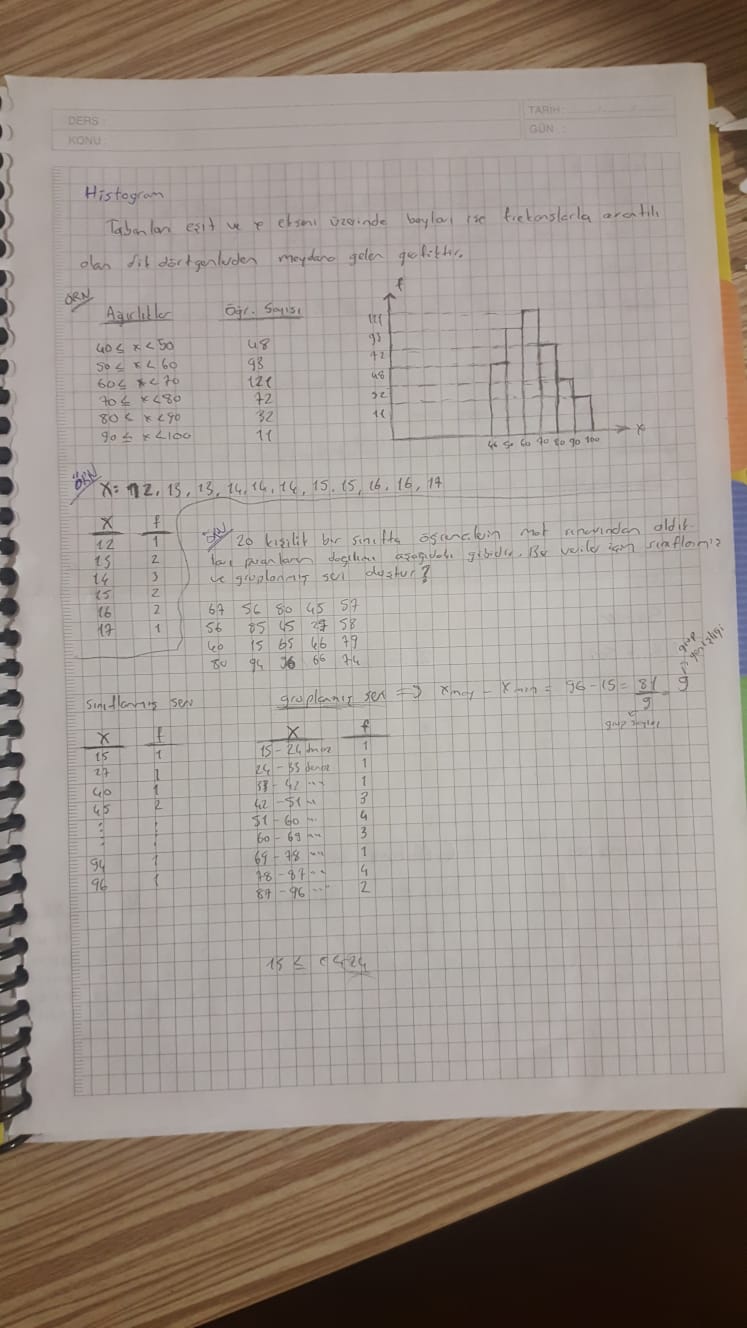 DERS :
KONU :
TARİH :
GÜN :
Histogram
Tabanları eşit ve x ekseni üzerinde boyları ise frekanslarla orantılı
olan dik dörtgenlerden meydana gelen grafiktir.
ÖRN
Ağırlıklar Öğr. Sayısı
40 ≤ x < 50 48
50 ≤ x < 60 93
60 ≤ x < 70 121
70 ≤ x < 80 72
80 ≤ x < 90 32
90 ≤ x < 100 11
f
121
93
72
48
32
11
40 50 60 70 80 90 100 x
ÖRN
X = 12, 13, 13, 14, 14, 14, 15, 15, 16, 16, 17
X f
12 1
13 2
14 3
15 2
16 2
17 1
ÖRN 20 kişilik bir sınıfta öğrencilerin mat sınavından aldık
ları puanların dağılımı aşağıdaki gibidir. Bu veriler için sınıflanmış
ve gruplanmış seri oluştur?
67 56 80 45 57
56 85 45 27 58
40 15 65 46 79
80 94 96 66 74
sınıflanmış seri
X f
15 1
27 1
40 1
45 2
⋮ ⋮
94 1
96 1
gruplanmış seri ⇒ Xmax - Xmin = 96 - 15 = 81
9
9
grup sayısı
grup genişliği
X f
15 - 24 den az 1
24 - 33 den az 1
33 - 42 " " 1
42 - 51 " 3
51 - 60 " 4
60 - 69 " " 3
69 - 78 " " 1
78 - 87 " " 4
87 - 96 " " 2
15 ≤ 24